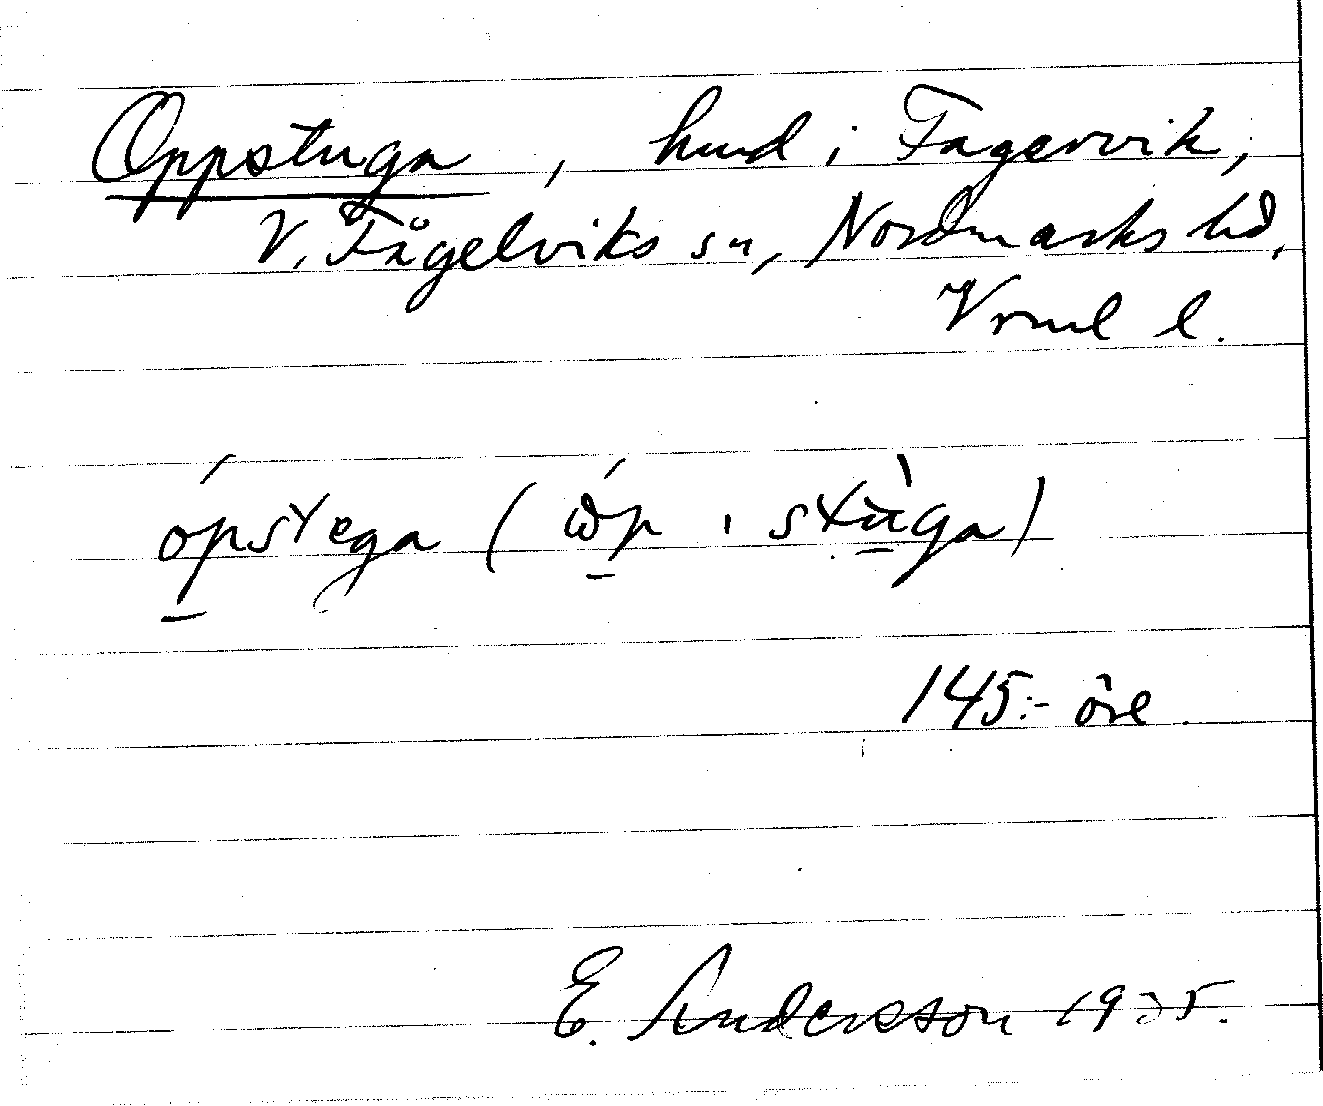 Oppstuga, hmd i Fagervik,
V. Fågelviks sn, Nordmarks hd,
Vrml l.
ópstega ( ẃp . stùga)
145:- öre
E. Andersson 1935.